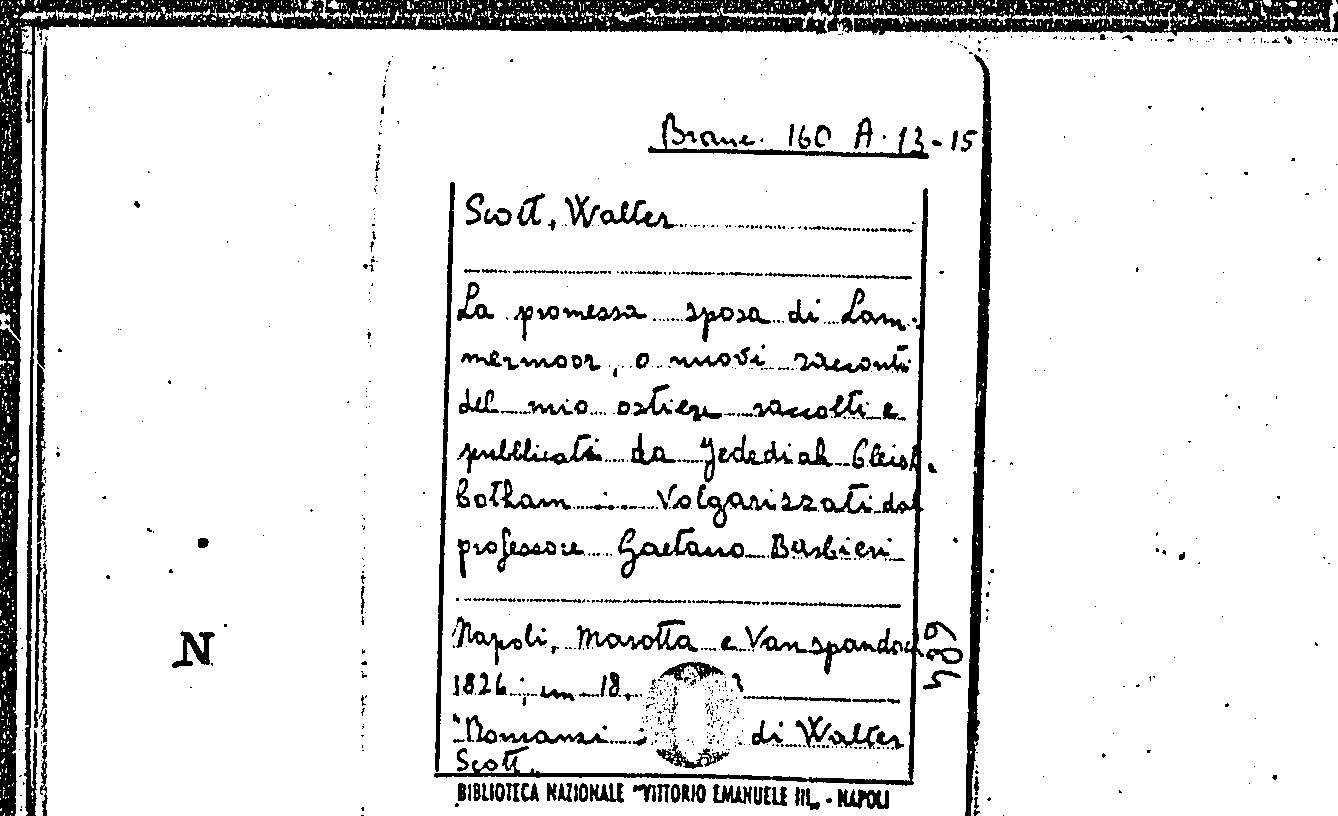 Branc. 160 A. 13-15
Scott, Walter
La promessa sposa di Lam-
mermoor, o nuovi racconti
del mio ostiere raccolti e
pubblicati da Jedediah Cleish-
botham .... Volgarizzati dal
professore Gaetano Barbieri
Napoli, Marotta e Vanspandoch
1826; in 18. 3
"Romanzi di Walter
Scott.
BIBLIOTECA NAZIONALE "VITTORIO EMANUELE III„ - NAPOLI
N